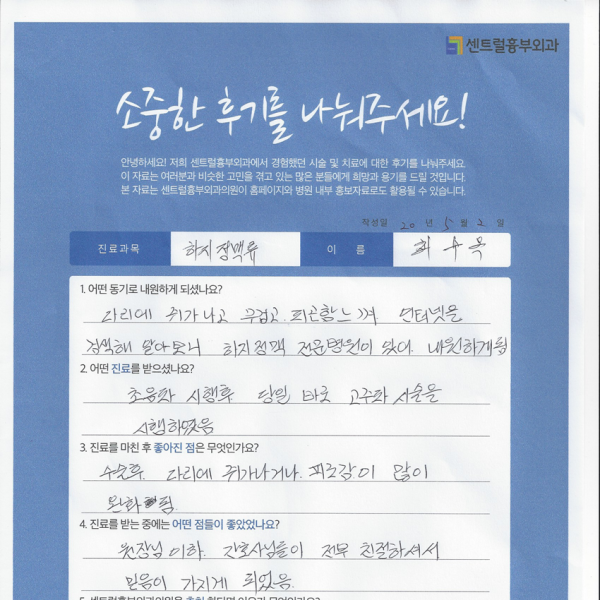 센트럴흉부외과
소중한 후기를 나눠주세요!
안녕하세요! 저희 센트럴흉부외과에서 경험했던 시술 및 치료에 대한 후기를 나눠주세요.
이 자료는 여러분과 비슷한 고민을 겪고 있는 많은 분들에게 희망과 용기를 드릴 것입니다.
본 자료는 센트럴흉부외과의원이 홈페이지와 병원 내부 홍보자료로도 활용될 수 있습니다.
작성일 20 년 5 월 2 일
진료과목 하지정맥류 이 름
1. 어떤 동기로 내원하게 되셨나요?
다리에 쥐가나고 무겁고 피곤함느껴 인터넷을
검색해 알아보니 하지정맥 전문병원이 있다. 내원하게됨
2. 어떤 진료를 받으셨나요?
초음파 시행후 당일 바로 고주파 시술을
시행하였음
3. 진료를 마친 후 좋아진 점은 무엇인가요?
수술후. 다리에 쥐가나거나. 피로감이 많이
완화 됨.
4. 진료를 받는 중에는 어떤 점들이 좋았었나요?
원장님이하. 간호사님들이 전부 친절하셔서
믿음이 가지게 되었음.